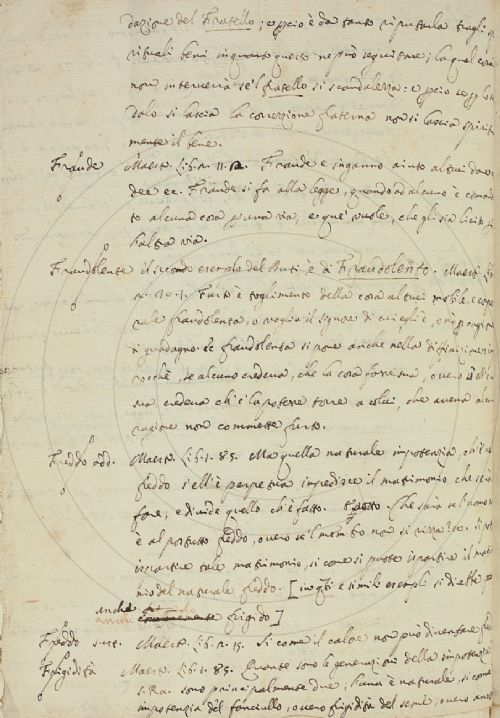 dazione del Fratello; e p̱ciò è da tanto riputarla tragli
rituali beni inquanto questo ne può seguitare; la qual cosa
non interverrà se'l fratello si scandalezza: e p̱ciò se p̱ lo
dolo si lascia la correzione fraterna non si lascia spirit
mente il bene.
Fraude Maestr. Lib. 2. 11. 12. Fraude e inganno aiuto altrui dare
dee ec. Fraude si fa alla legge, quando ad alcuno è coman
to alcuna cosa p̱ una via, e que' vuole, che gli sia licito
l'altra via.
Fraudolente il secondo esemplo del Buti è di Fraudolento. Maestr. Li
2. 30. 1. Furto è toglimento della cosa altrui mobile, e corp
rale fraudolenta, o voglia il signore di cui egli è, e
di guadagno. Se fraudolenta si pone anche nella diffinizione
rocchè, se alcuno credeva, che la cosa fosse sua, overo
sua credeva ch'e' la potesse torre a colui, che aveva alcu
ragione non commette furto.
Freddo add. Maestr. Lib. 1. 85. Ma quella naturale impotenzia, ch'è
freddo s'ell'è perpetua impedisce il matrimonio che
fare, e divide quello ch'è fatto. Che sarà se l'uomo
è al postutto freddo, overo se il membro non si rizza? Si
ispartire tale matrimonio, si come si puote ispartire il mat
mio del naturale freddo. [in q̃ti e simili esempli si direbbe
anche frigido]
Freddo sust. Maestr. Lib. 2. 15. Si come il calore non può diventare
Frigidità Maestr. Lib. 1. 85. Quante sono le generazioni della impotenzia
sono principalmente due; l'una è naturale, si come
impotenzia del fanciullo, overo frigidità del seme, overo